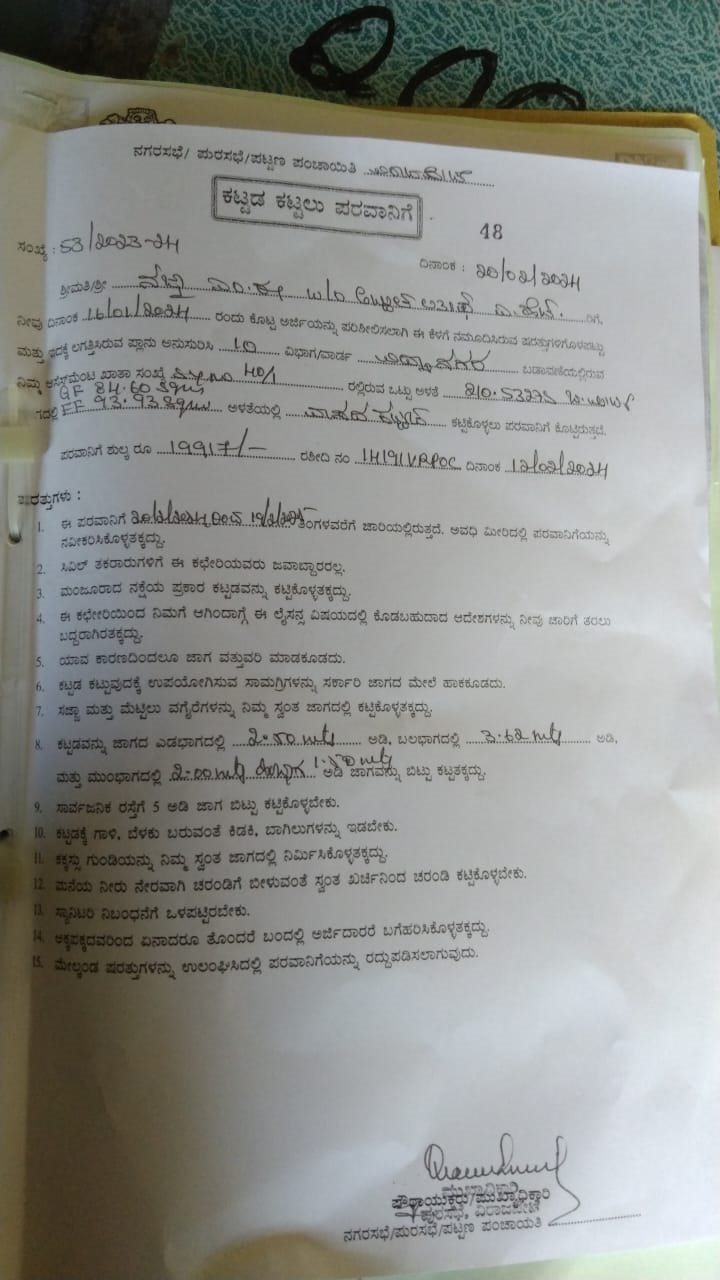 ನಗರಸಭೆ/ ಪುರಸಭೆ/ಪಟ್ಟಣ ಪಂಚಾಯಿತಿ ವಿರಾಜಪೇಟೆ
ಕಟ್ಟಡ ಕಟ್ಟಲು ಪರವಾನಿಗೆ
48
ಸಂಖ್ಯೆ : 53/2023-24
ದಿನಾಂಕ : 20/02/2024
ಶ್ರೀಮತಿ/ಶ್ರೀ ಎಂ.ಕೆ W/O ರಿಗೆ,
ನೀವು ದಿನಾಂಕ 16/01/2024 ರಂದು ಕೊಟ್ಟ ಅರ್ಜಿಯನ್ನು ಪರಿಶೀಲಿಸಲಾಗಿ ಈ ಕೆಳಗೆ ನಮೂದಿಸಿರುವ ಷರತ್ತುಗಳಿಗೊಳಪಟ್ಟು
ಮತ್ತು ಇದಕ್ಕೆ ಲಗತ್ತಿಸಿರುವ ಪ್ಲಾನು ಅನುಸರಿಸಿ 10 ವಿಭಾಗ/ವಾರ್ಡ ವಿದ್ಯಾನಗರ ಬಡಾವಣೆಯಲ್ಲಿರುವ
ನಿಮ್ಮ ಅಸೆಸ್‌ಮೆಂಟ ಖಾತಾ ಸಂಖ್ಯೆ 40/1 ರಲ್ಲಿರುವ ಒಟ್ಟು ಅಳತೆ 210.53775 ಚ.ಮೀ
GF 84.60 Sqm
FF 93.93 Sqm ಅಳತೆಯಲ್ಲಿ ವಾಸದ ಕಟ್ಟಡ ಕಟ್ಟಿಕೊಳ್ಳಲು ಪರವಾನಿಗೆ ಕೊಟ್ಟಿರುತ್ತದೆ.
ಪರವಾನಿಗೆ ಶುಲ್ಕ ರೂ 19917/- ರಶೀದಿ ನಂ 14191VRPOC ದಿನಾಂಕ 12/02/2024
ಷರತ್ತುಗಳು :
1. ಈ ಪರವಾನಿಗೆ 20/2/2024 ರಿಂದ 19/2/2025 ತಿಂಗಳವರೆಗೆ ಜಾರಿಯಲ್ಲಿರುತ್ತದೆ. ಅವಧಿ ಮೀರಿದಲ್ಲಿ ಪರವಾನಿಗೆಯನ್ನು
ನವೀಕರಿಸಿಕೊಳ್ಳತಕ್ಕದ್ದು.
2. ಸಿವಿಲ್ ತಕರಾರುಗಳಿಗೆ ಈ ಕಛೇರಿಯವರು ಜವಾಬ್ದಾರರಲ್ಲ.
3. ಮಂಜೂರಾದ ನಕ್ಷೆಯ ಪ್ರಕಾರ ಕಟ್ಟಡವನ್ನು ಕಟ್ಟಿಕೊಳ್ಳತಕ್ಕದ್ದು.
4. ಈ ಕಛೇರಿಯಿಂದ ನಿಮಗೆ ಆಗಿಂದಾಗ್ಗೆ ಈ ಲೈಸನ್ಸ ವಿಷಯದಲ್ಲಿ ಕೊಡಬಹುದಾದ ಆದೇಶಗಳನ್ನು ನೀವು ಜಾರಿಗೆ ತರಲು
ಬದ್ದರಾಗಿರತಕ್ಕದ್ದು.
5. ಯಾವ ಕಾರಣದಿಂದಲೂ ಜಾಗ ವತ್ತುವರಿ ಮಾಡಕೂಡದು.
6. ಕಟ್ಟಡ ಕಟ್ಟುವುದಕ್ಕೆ ಉಪಯೋಗಿಸುವ ಸಾಮಗ್ರಿಗಳನ್ನು ಸರ್ಕಾರಿ ಜಾಗದ ಮೇಲೆ ಹಾಕಕೂಡದು.
7. ಸಜ್ಜಾ ಮತ್ತು ಮೆಟ್ಟಿಲು ವಗೈರೆಗಳನ್ನು ನಿಮ್ಮ ಸ್ವಂತ ಜಾಗದಲ್ಲಿ ಕಟ್ಟಿಕೊಳ್ಳತಕ್ಕದ್ದು.
8. ಕಟ್ಟಡವನ್ನು ಜಾಗದ ಎಡಭಾಗದಲ್ಲಿ 2.50 mtg ಅಡಿ, ಬಲಭಾಗದಲ್ಲಿ 3.62 mtg ಅಡಿ,
ಮತ್ತು ಮುಂಭಾಗದಲ್ಲಿ 2.00 mtg ಹಿಂಭಾಗ 1.50 mtg ಅಡಿ ಜಾಗವನ್ನು ಬಿಟ್ಟು ಕಟ್ಟತಕ್ಕದ್ದು.
9. ಸಾರ್ವಜನಿಕ ರಸ್ತೆಗೆ 5 ಅಡಿ ಜಾಗ ಬಿಟ್ಟು ಕಟ್ಟಿಕೊಳ್ಳಬೇಕು.
10. ಕಟ್ಟಡಕ್ಕೆ ಗಾಳಿ, ಬೆಳಕು ಬರುವಂತೆ ಕಿಡಕಿ, ಬಾಗಿಲುಗಳನ್ನು ಇಡಬೇಕು.
11. ಕಕ್ಕಸ್ಸು ಗುಂಡಿಯನ್ನು ನಿಮ್ಮ ಸ್ವಂತ ಜಾಗದಲ್ಲಿ ನಿರ್ಮಿಸಿಕೊಳ್ಳತಕ್ಕದ್ದು.
12. ಮನೆಯ ನೀರು ನೇರವಾಗಿ ಚರಂಡಿಗೆ ಬೀಳುವಂತೆ ಸ್ವಂತ ಖರ್ಚಿನಿಂದ ಚರಂಡಿ ಕಟ್ಟಿಕೊಳ್ಳಬೇಕು.
13. ಸ್ಯಾನಿಟರಿ ನಿಬಂಧನೆಗೆ ಒಳಪಟ್ಟಿರಬೇಕು.
14. ಅಕ್ಕಪಕ್ಕದವರಿಂದ ಏನಾದರೂ ತೊಂದರೆ ಬಂದಲ್ಲಿ ಅರ್ಜಿದಾರರೆ ಬಗೆಹರಿಸಿಕೊಳ್ಳತಕ್ಕದ್ದು.
15. ಮೇಲ್ಕಂಡ ಷರತ್ತುಗಳನ್ನು ಉಲಂಘಿಸಿದಲ್ಲಿ ಪರವಾನಿಗೆಯನ್ನು ರದ್ದುಪಡಿಸಲಾಗುವುದು.
ಮುಖ್ಯಾಧಿಕಾರಿ
ಪೌರಾಯುಕ್ತರು/ಮುಖ್ಯಾಧಿಕಾರಿ
ಪುರಸಭೆ, ವಿರಾಜಪೇಟೆ
ನಗರಸಭೆ/ಪುರಸಭೆ/ಪಟ್ಟಣ ಪಂಚಾಯತಿ